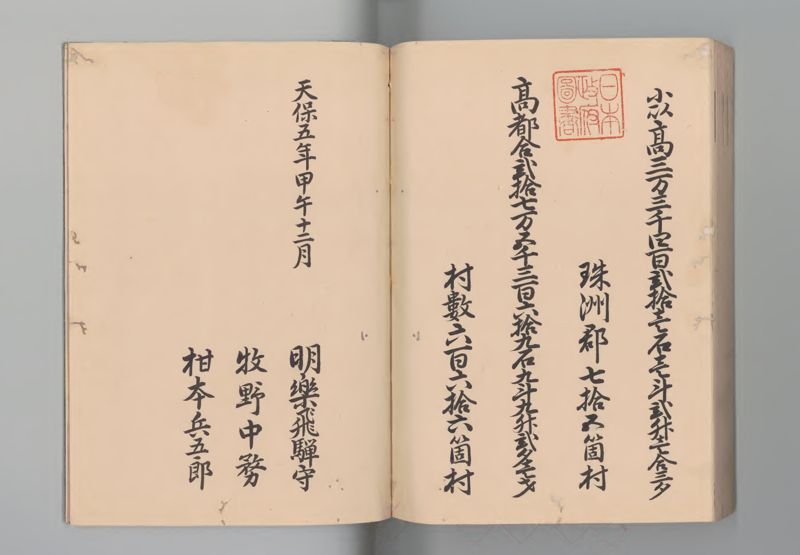 小以高三万三千四百弐拾壱石壱斗弐升壱合三夕
日本政府圖書
珠洲郡七拾五箇村
高都合弐拾七万五千三百六拾九石九斗九升弐夕七才
村數六百六拾六箇村
天保五年甲午十二月
明樂飛騨守
牧野中務
柑本兵五郎